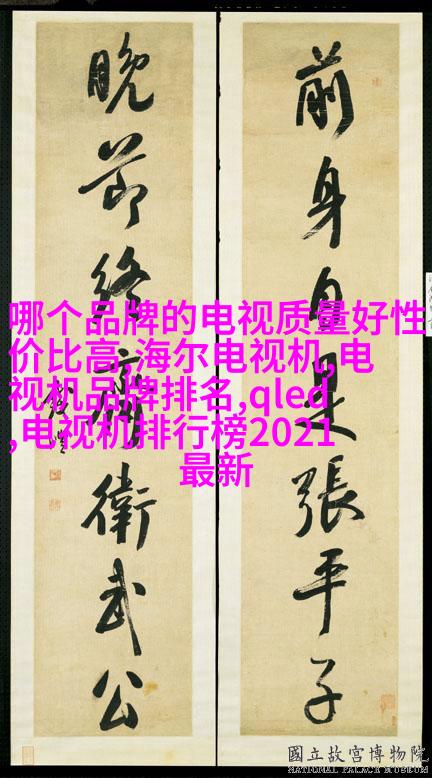 前身自是張平子
晚節終衛武公
哪个品牌的电视质量好性
价比高,海尔电视机,电
视机品牌排名,qled
,电视机排行榜2021
最新
國立故宮博物院
NATIONAL PALACE MUSEUM